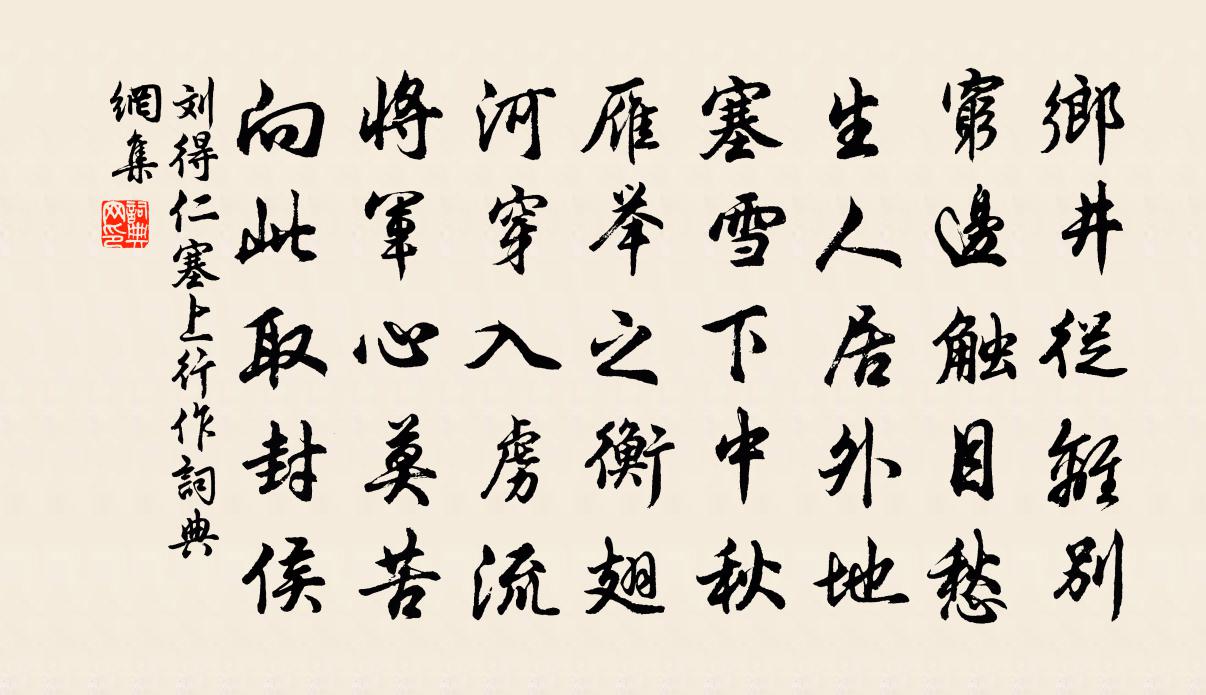 鄉井從離別
窮邊觸目愁
生人居外地
塞雪下中秋
雁举之衡翅
河穿入虏流
將軍心莫苦
向此取封侯
刘得仁塞上行作詞典
網集
詞典
网印